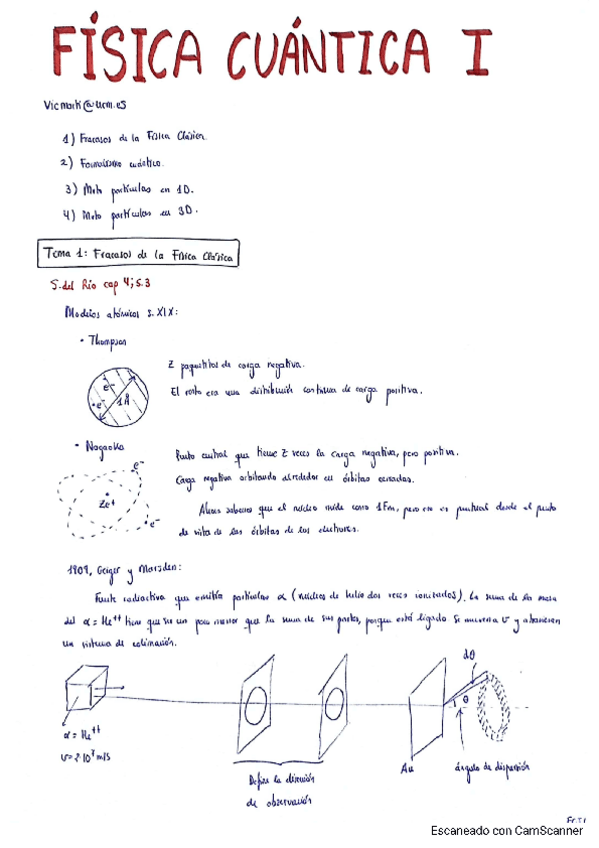 FÍSICA CUÁNTICA I
Vicmarti@ucm.es
1) Fracasos de la Física Clásica.
2) Formalismo cuántico.
3) Mov partículas en 1D.
4) Mov partículas en 3D.
Tema 1: Fracasos de la Física Clásica
S. del Río cap 4; 5.3
Modelos atómicos s. XIX:
• Thompson
Z paquetitos de carga negativa.
El resto era una distribución continua de carga positiva.
e⁻
e⁻
1Å
• Nagaoka
Punto central que tiene Z veces la carga negativa, pero positiva.
Carga negativa orbitando alrededor en órbitas cerradas.
Ahora sabemos que el núcleo mide como 1Fm, pero eso es puntual desde el punto
de vista de las órbitas de los electrones.
e⁻
Ze⁺
e⁻
1909, Geiger y Marsden:
Fuente radiactiva que emitía partículas α (núcleos de helio dos veces ionizados). La suma de la masa
del α = He⁺⁺ tiene que ser un poco menor que la suma de sus partes, porque está ligado. Si
un sistema de colimación.
dθ
θ
α = He⁺⁺
v = 2·10⁷ m/s
Au
ángulo de dispersión
Define la dirección
de observación
Escaneado con CamScanner